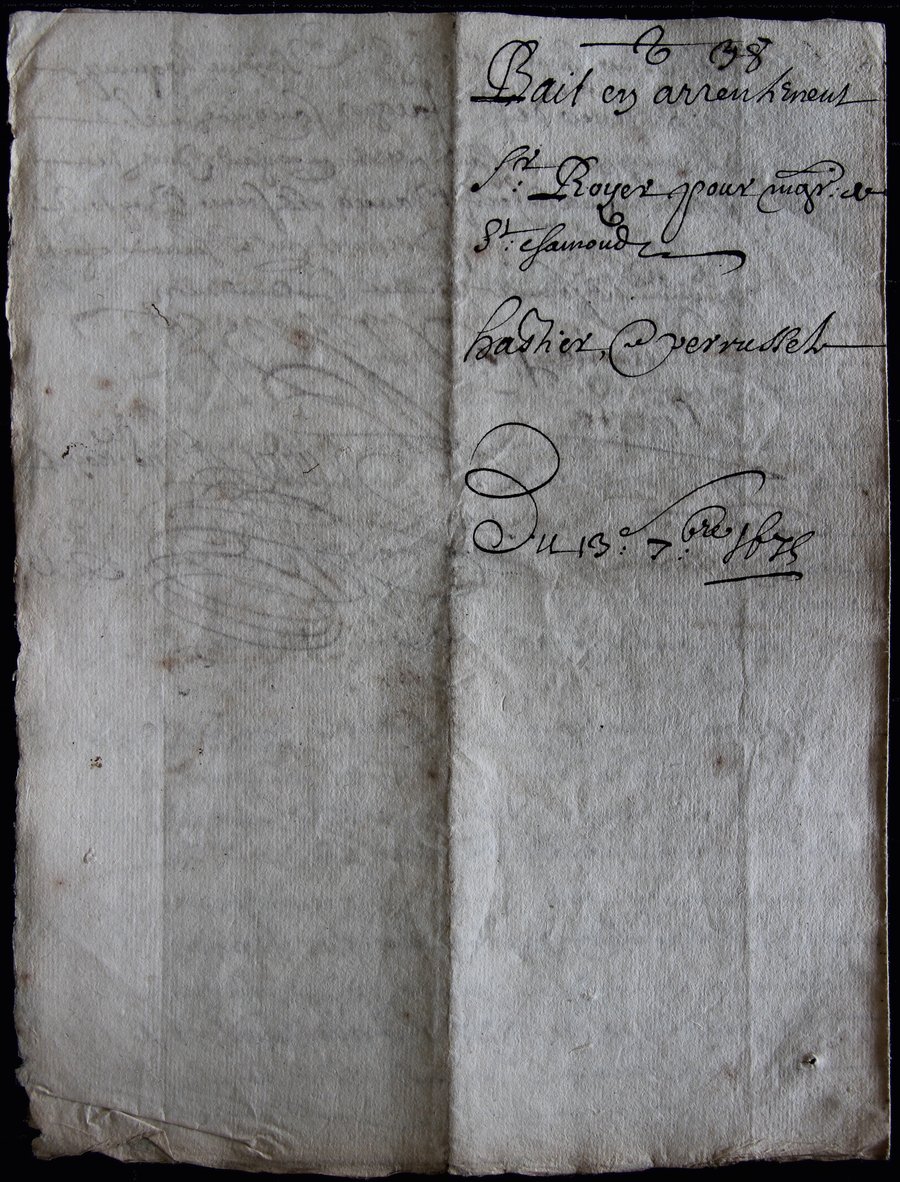 38
Bail en arrentement
Sr: Royer pour mgr: de
St: chamond
hastier, et perrusset
Du 13e 7bre 1675